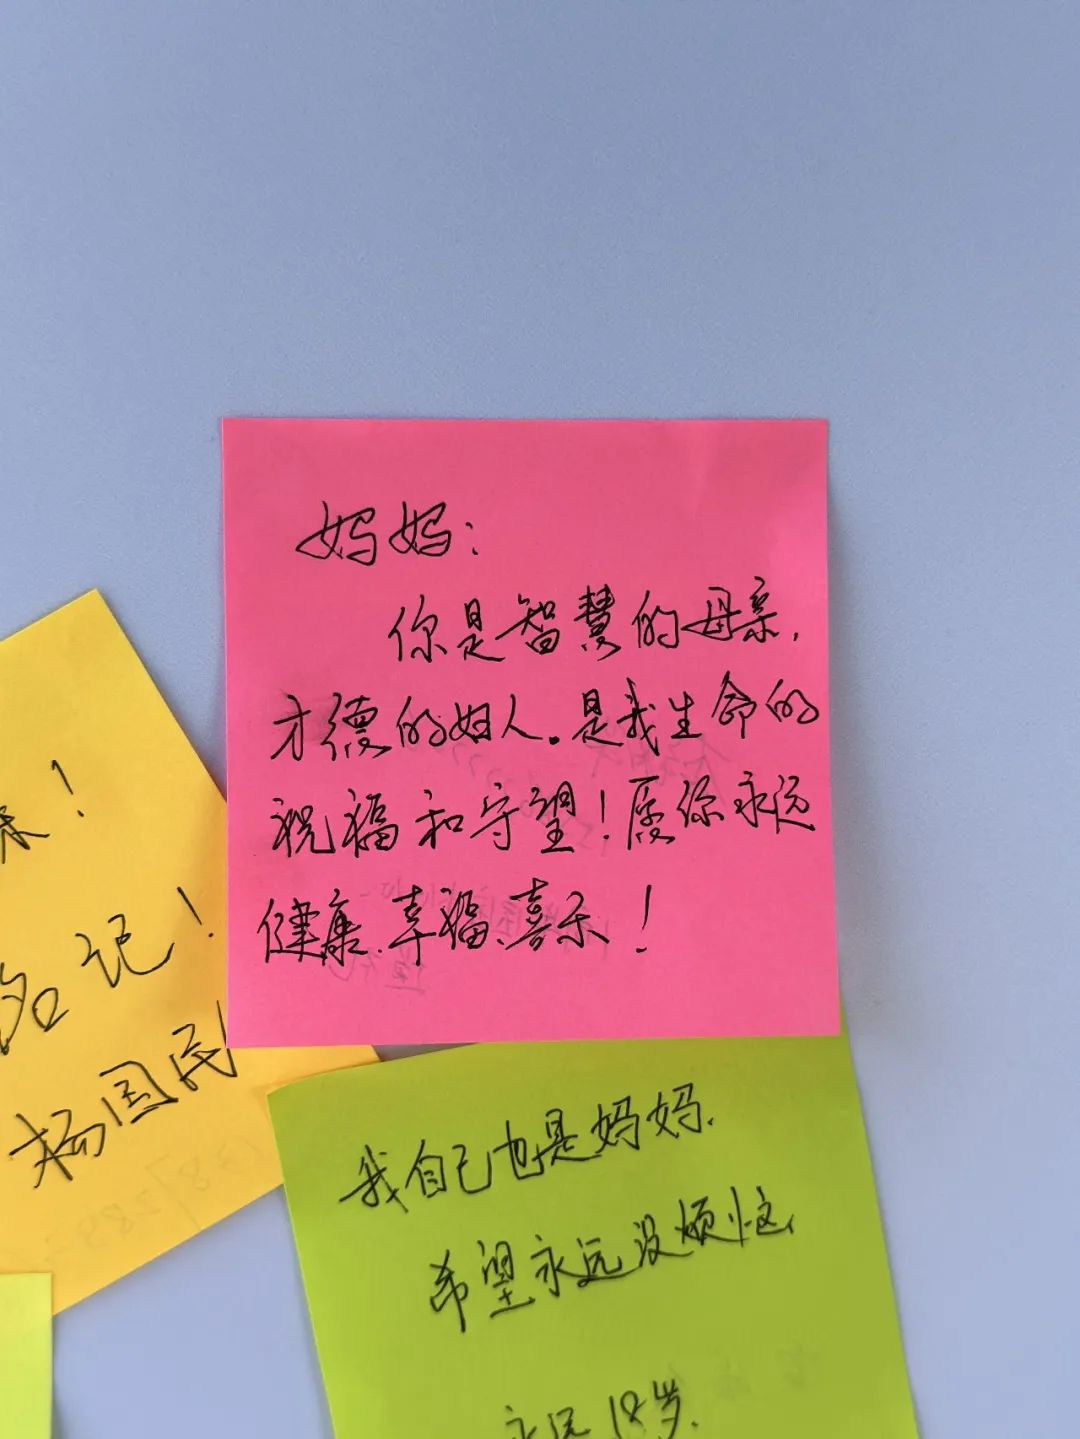 妈妈：
你是智慧的母亲，
才德的妇人。是我生命的
祝福和守望！愿你永远
健康、幸福、喜乐！
！
名记！
杨国民
我自己也是妈妈，
希望永远没烦恼，
永远18岁.